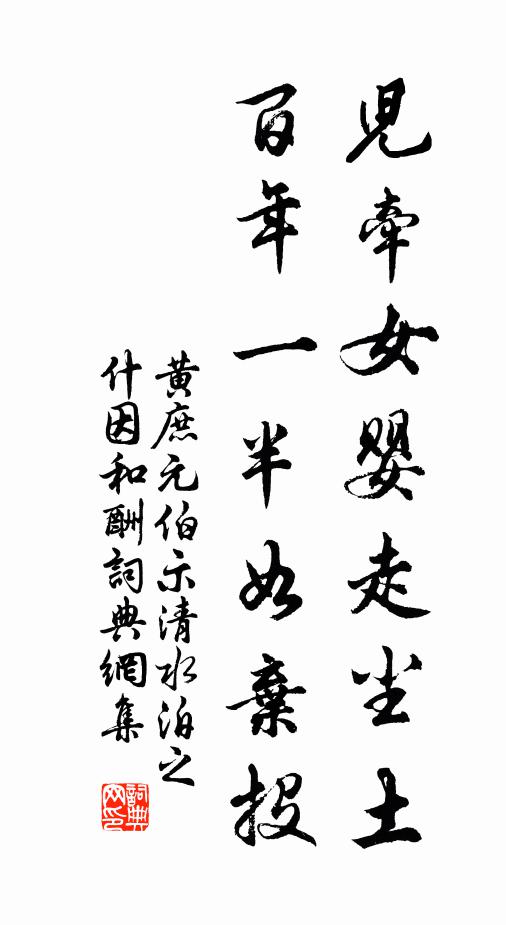 兒牽女嬰走尘土
百年一半如棄投
黃庶元伯示清水泊之
什因和酬詞典網集
詞典网印